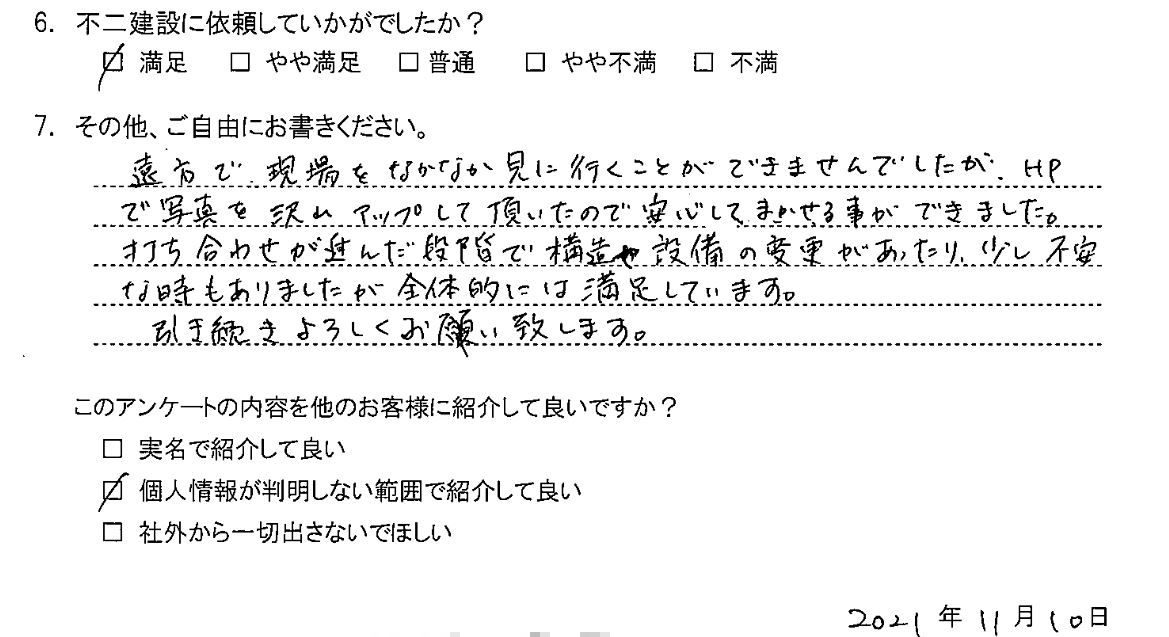 6. 不二建設に依頼していかがでしたか？
☑ 満足 □ やや満足 □ 普通 □ やや不満 □ 不満
7. その他、ご自由にお書きください。
遠方で現場をなかなか見に行くことができませんでしたが、HP
で写真を沢山アップして頂いたので安心してまかせる事ができました。
打ち合わせが進んだ段階で構造や設備の変更があったり、少し不安
な時もありましたが全体的には満足しています。
引き続きよろしくお願い致します。
このアンケートの内容を他のお客様に紹介して良いですか？
□ 実名で紹介して良い
☑ 個人情報が判明しない範囲で紹介して良い
□ 社外から一切出さないでほしい
2021年11月10日